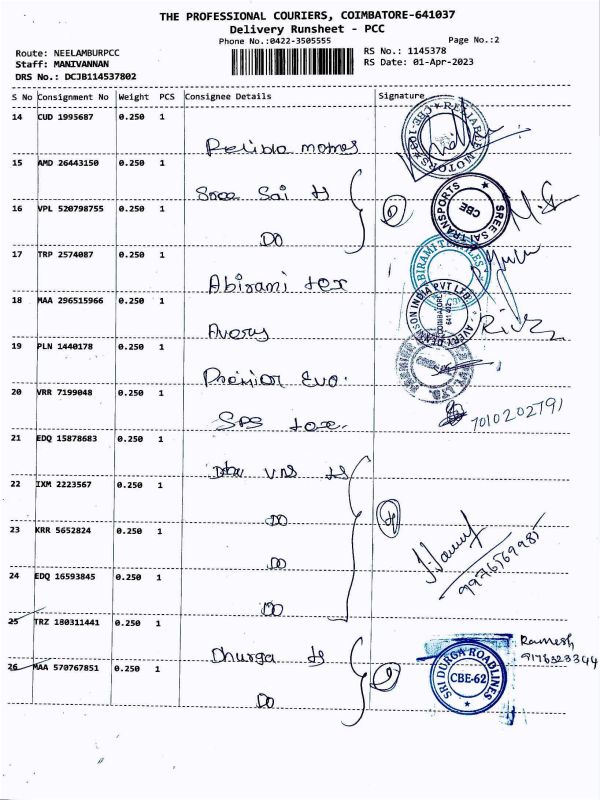 THE PROFESSIONAL COURIERS, COIMBATORE-641037
Delivery Runsheet - PCC
Phone No.:0422-3505555
Page No.:2
Route: NEELAMBURPCC
RS No.: 1145378
Staff: MANIVANNAN
RS Date: 01-Apr-2023
DRS No.: DCJB114537802
S No Consignment No Weight PCS Consignee Details Signature
14 CUD 1995687 0.250 1
RELIABLE MOTORS
15 AMD 26443150 0.250 1
Sree Sai ts
16 VPL 520798755 0.250 1
SREE SAI TRANSPORTS
CBE
DO
17 TRP 2574087 0.250 1
Abirami tex
18 MAA 296515966 0.250 1
AVERY DENNISON INDIA PVT LTD
COIMBATORE
Avery
19 PLN 1440178 0.250 1
Premior Evo.
20 VRR 7199048 0.250 1
SPS tex.
7010202791
21 EDQ 15878683 0.250 1
VNS ts
22 IXM 2223567 0.250 1
DO
23 KRR 5652824 0.250 1
DO
24 EDQ 16593845 0.250 1
9976569985
DO
25 TRZ 180311441 0.250 1
Dhurga ts
Ramesh
9176523344
26 MAA 570767851 0.250 1
SRI DURGA ROADLINES
CBE-62
DO